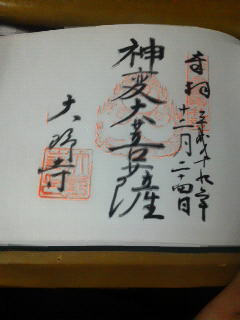 奉拝
平成十九年
十二月二十四日
神変大菩薩